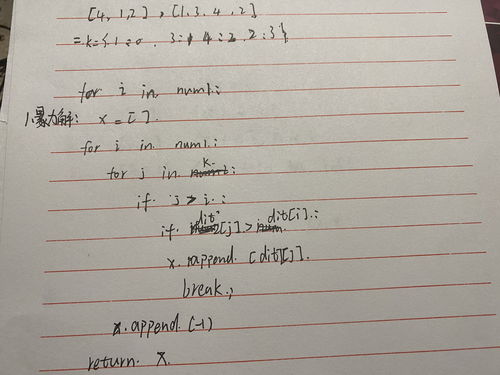 [4, 1,2] , [1,3,4,2]
= k={1:0, 3:1 4:2, 2:3}
for i in num1:
1.暴力解: x = [].
for i in num1:
for j in k:
if j > i:
if dit[j] > dit[i]:
x.append. [dit[j].
break;
x.append.(-1)
return. x.